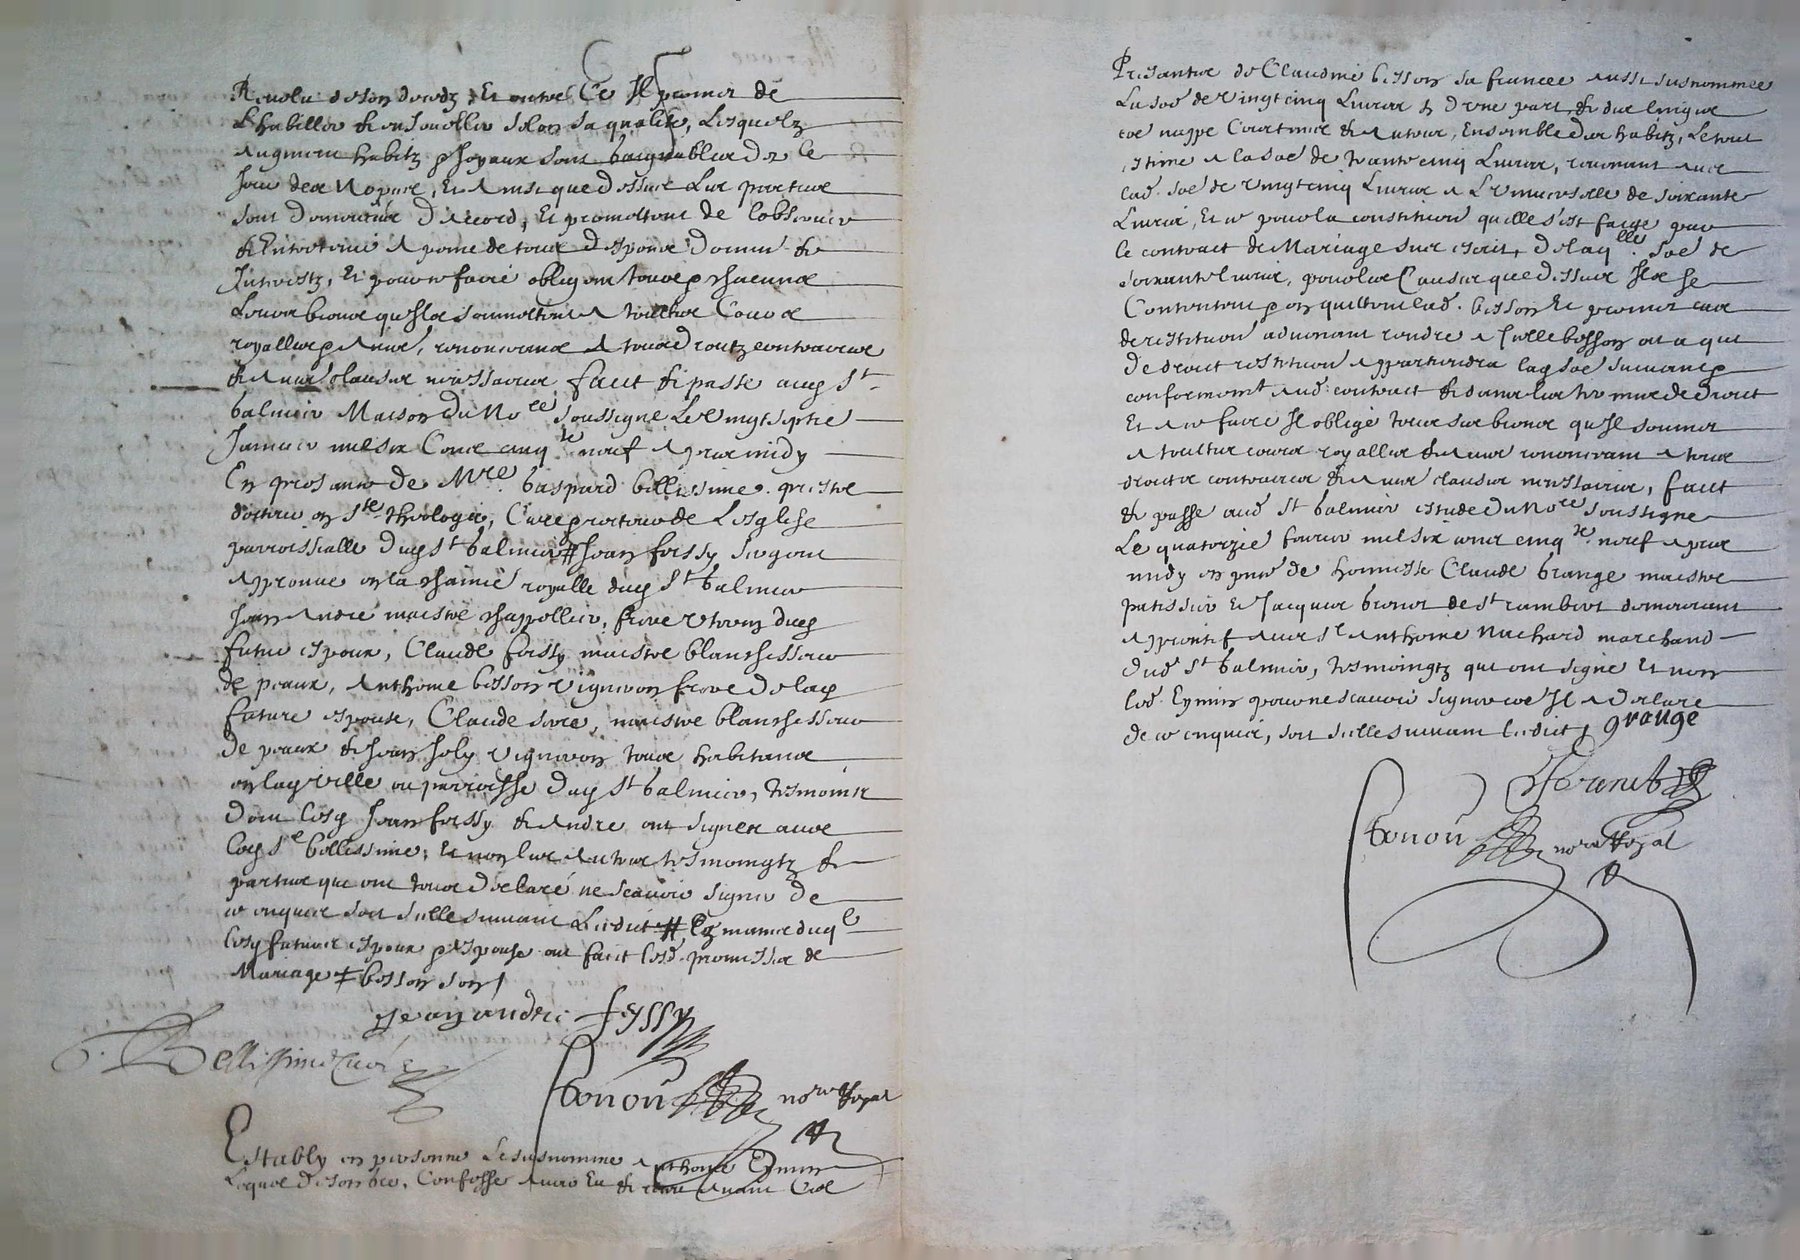 Revolu de son deceds, Et outre Ce Il promet de
L'habiller & enJoueller selon sa qualité, Lesquelz
augment habitz & Joyaux sont
Jour des Nopces, Et Ainsi que dessus Les parties
sont demeurées D'accord, Et promettent de l'observer
& Entretenir A peine de tous despens Domm. &
Interestz, Et pour ce faire obligent tous & chacuns
Leurs biens qu'Ilz soumettent A toultes Cours
royalles & Autres, renonceans A tous droitz contraires
& Autres clauses necessaires faict & passé aud. St
balmier Maison du No.re soussigné Le Vingt septie
Janvier mil six Centz cinq.te neuf Apres midy
En presance de M.re baspard bellissime prestre
docteur en S.te theologie, Curé & recteur de L'esglise
parroissialle dud. St balmier # Jean feyssy sergent
en la royalle dud. St balmier
Jean Andre maistre chappellier, frere Uterin dud.
futur espoux, Claude feyssy maistre blanchisseur
de peaux, Anthoine besson Vigneron frere de lad.
future espouse, Claude maistre blanchisseur
de peaux & Jean Joly Vigneron tous habitans
en lad. Ville ou parroisse dud. St balmier, tesmoins
Dont lesd. Jean feyssy & Andre ont signés avec
led. S.r bellissime, Et non les Autres tesmoingtz &
parties qui ont tous Declaré ne scavoir signer de
ce enquis soit scellé suivant L'edict # Es mains duq.l
lesd. futurs espoux & espouse ont faict lesd. promisses de
Mariage
Jean andre feyssy
Bellissime Curé
bouou no.re Royal
Estably en personne Le susnommé Anthoine Eymin
Lequel de son gré, Confesse Avoir Eu & receu avant Ces
Presantes de Claudine besson sa fiancée aussi susnommée
La so.e de Vingt cinq Livres d'Une part, & du linge
nappe Courtines & Autres, Ensemble des habitz, Le tout
estimé A la so.e de trante cinq Livres, revenant Avec
lad. so.e de Vingt cinq Livres A L'Universelle de soixante
Livres, Et ce pour la constitution qu'elle s'est faicte par
le contract de Mariage sus escrit, De laq.lle so.e de
soixante Livres, pour les Causes que dessus Il se
Contente & en quitte lad. besson Et promet cas
de restitution advenant rendre A Icelle besson ou a qui
De droict restitution Appartiendra lad. so.e suivant &
conformem.t Aud. contract & dans les termes de Droict
Et A ce faire Il oblige tous ses biens qu'Il soumet
A toultes cours royalles & Autres renonceant A tous
droictz contraires & Autres clauses necessaires, faict
& passé aud. St balmier estude du No.re soussigné
Le quatorzie fevrier mil six centz cinq.te neuf Apres
midy en pnce de honneste Claude Grange maistre
patissier Et Jacques de St rambert demeurant
Apprentif Avec S.r Anthoine Michard marchand
dud. St balmier, tesmoingtz qui ont signé Et non
led. Eymin pour ne scavoir signer ce Il A Declaré
de ce enquis, soit scellé suivant l'edict grange
bouou no.re Royal